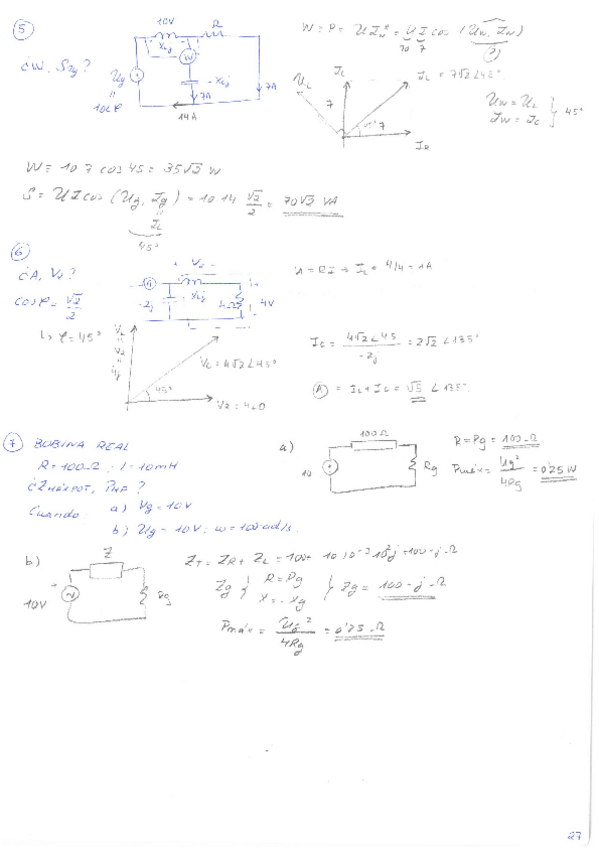 5
10V R
X_L j
W
-X_C j
¿W, S_Ug?
Ug
10∠φ
7A 7A
14A
W = P = U I_w* = U I cos (U_w, I_w)
10 7
I_L = 7√2∠45°
U_L I_C
7
45° 7
I_R
U_w = U_L
I_w = I_C } 45°
W = 10 7 cos 45 = 35√2 W
S = U I cos (Ug, Ig) = 10 14 √2/2 = 70√2 VA
I_L
45°
6
¿A, V_2?
cos φ = √2/2
↳ φ = 45°
+ V_2 -
-2j X_L j 4V
V = R I → I_L = 4/4 = 1A
V_L = 4√2∠45°
45°
V_R = 4∠0
I_C = 4√2∠45 / -2j = 2√2∠135°
A = I_L + I_C = √5 ∠135°
7 BOBINA REAL
R = 100Ω; L = 10mH
¿Z MAX POT, P_MAX?
Cuando a) Vg = 10V
b) Ug = 10V; ω = 100 rad/s
a)
100Ω
10 Rg
R = Rg = 100Ω
Pmáx = Ug²/4Rg = 0'25 W
b)
Z
10V Rg
Z_T = Z_R + Z_L = 100 + 10 10⁻³ 10²j = 100 - j Ω
Zg { R = Rg
X = -Xg } Zg = 100 - j Ω
Pmáx = Ug²/4Rg = 0'25 Ω
27